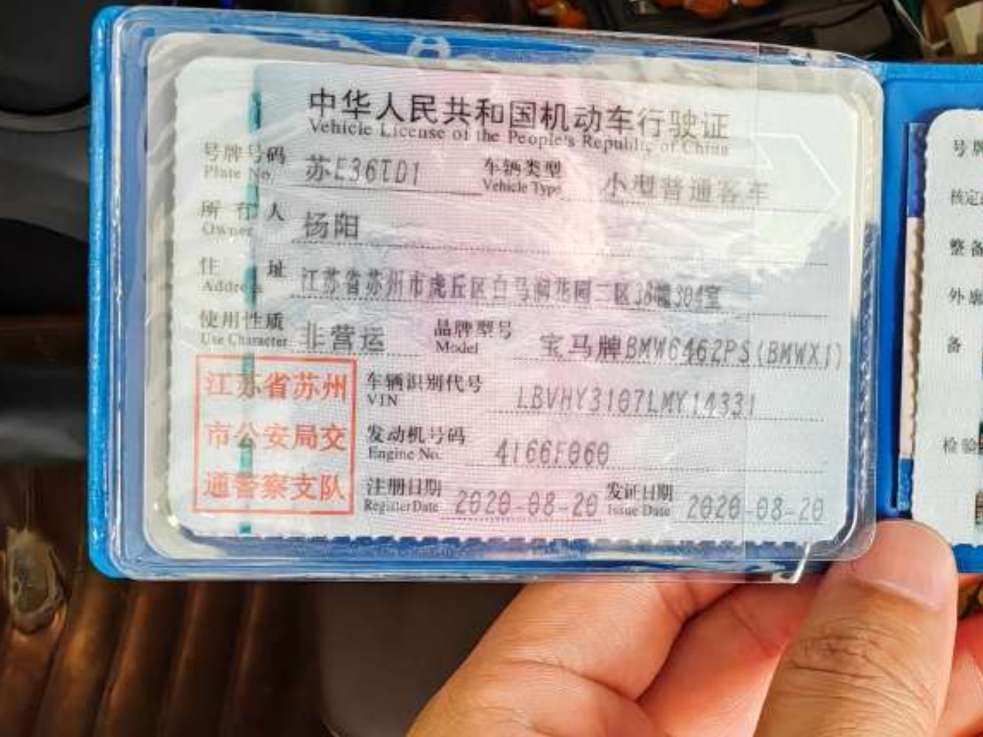 中华人民共和国机动车行驶证
Vehicle License of the People's Republic of China
号牌号码 苏E36TD1 车辆类型 小型普通客车
Plate No. Vehicle Type
所有人 杨阳
Owner
住址 江苏省苏州市虎丘区白马涧花园二区38幢304室
Address
使用性质 非营运 品牌型号 宝马牌BMW6462PS(BMWX1)
Use Character Model
江苏省苏州
市公安局交
通警察支队
车辆识别代号 LBVHY3107LMY14331
VIN
发动机号码 4166F060
Engine No.
注册日期 2020-08-20 发证日期 2020-08-20
Register Date Issue Date
号牌
核定
整备
外廓
备
检验